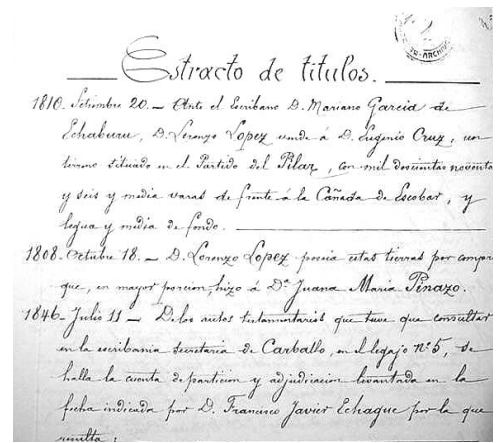 Estracto de titulos.
1810. Setiembre 20. — Ante el Escribano D. Mariano Garcia de
Echaburu, D. Lorenzo Lopez vende á D. Eugenio Cruz, un
terreno situado en el Partido del Pilar, con mil doscientas noventa
y seis y media varas de frente á la Cañada de Escobar, y
legua y media de fondo.
1808. Octubre 18. — D. Lorenzo Lopez poseia estas tierras por compra
que, en mayor porcion, hizo á Dª Juana Maria Pinazo.
1846. Julio 11 — De los autos testamentarios que tuve que consultar
en la escribania secretaria de Carballo, en el legajo nº 5, se
halla la cuenta de particion y adjudicacion levantada en la
fecha indicada por D. Francisco Javier Echague por la que
resulta: